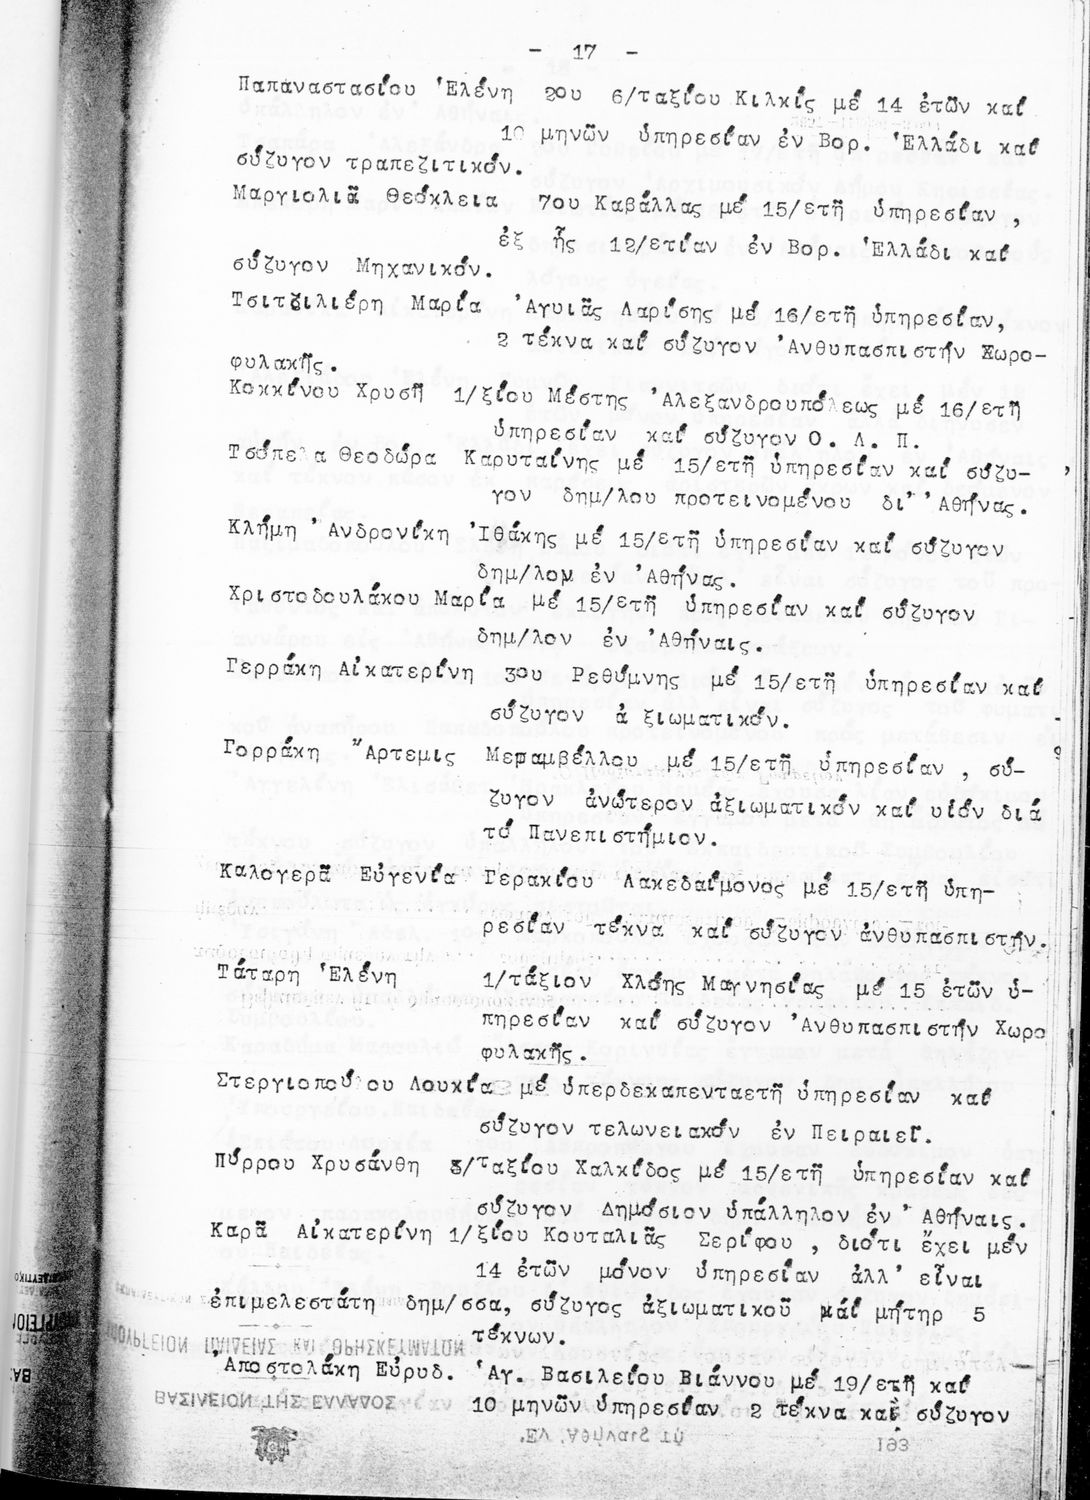 - 17 -
Παπαναστασίου Ἑλένη 2ου 6/ταξίου Κιλκίς μέ 14 ἐτῶν καί
10 μηνῶν ὑπηρεσίαν ἐν Βορ. Ἑλλάδι καί
σύζυγον τραπεζιτικόν.
Μαργιολιᾶ Θεόκλεια 7ου Καβάλλας μέ 15/ετῆ ὑπηρεσίαν,
ἐξ ἧς 12/ετίαν ἐν Βορ. Ἑλλάδι καί
σύζυγον Μηχανικόν.
Τσιτζιλιέρη Μαρία Ἀγυιᾶς Λαρίσης μέ 16/ετῆ ὑπηρεσίαν,
2 τέκνα καί σύζυγον Ἀνθυπασπιστήν Χωρο-
φυλακῆς.
Κοκκίνου Χρυσῆ 1/ξίου Μέστης Ἀλεξανδρουπόλεως μέ 16/ετῆ
ὑπηρεσίαν καί σύζυγον Ο. Λ. Π.
Τσόπελα Θεοδώρα Καρυταίνης μέ 15/ετῆ ὑπηρεσίαν καί σύζυ-
γον δημ/λου προτεινομένου δι' Ἀθήνας.
Κλήμη Ἀνδρονίκη Ἰθάκης μέ 15/ετῆ ὑπηρεσίαν καί σύζυγον
δημ/λον ἐν Ἀθήνας.
Χριστοδουλάκου Μαρία μέ 15/ετῆ ὑπηρεσίαν καί σύζυγον
δημ/λον ἐν Ἀθήναις.
Γερράκη Αἰκατερίνη 3ου Ρεθύμνης μέ 15/ετῆ ὑπηρεσίαν καί
σύζυγον ἀ ξιωματικόν.
Γορράκη Ἄρτεμις Μεραμβέλλου μέ 15/ετῆ ὑπηρεσίαν , σύ-
ζυγον ἀνώτερον ἀξιωματικόν καί υἱόν διά
τό Πανεπιστήμιον.
Καλογερᾶ Εὐγενία Γερακίου Λακεδαίμονος μέ 15/ετῆ ὑπη-
ρεσίαν τέκνα καί σύζυγον ἀνθυπασπιστήν.
Τάταρη Ἑλένη 1/τάξιον Χλόης Μαγνησίας μέ 15 ἐτῶν ὑ-
πηρεσίαν καί σύζυγον Ἀνθυπασπιστήν Χωρο
φυλακῆς.
Στεργιοπούλου Λουκία μέ ὑπερδεκαπενταετῆ ὑπηρεσίαν καί
σύζυγον τελωνειακόν ἐν Πειραιεῖ.
Πύρρου Χρυσάνθη 3/ταξίου Χαλκίδος μέ 15/ετῆ ὑπηρεσίαν καί
σύζυγον Δημόσιον ὑπάλληλον ἐν Ἀθήναις.
Καρᾶ Αἰκατερίνη 1/ξίου Κουταλιᾶς Σερίφου , διότι ἔχει μέν
14 ἐτῶν μόνον ὑπηρεσίαν ἀλλ' εἶναι
ἐπιμελεστάτη δημ/σσα, σύζυγος ἀξιωματικοῦ καί μήτηρ 5
τέκνων.
Ἀποστολάκη Εὐρυδ. Ἁγ. Βασιλείου Βιάννου μέ 19/ετῆ καί
10 μηνῶν ὑπηρεσίαν 2 τέκνα καί σύζυγον
ΥΠΟΥΡΓΕΙΟΝ ΠΑΙΔΕΙΑΣ ΚΑΙ ΘΡΗΣΚΕΥΜΑΤΩΝ
ΒΑΣΙΛΕΙΟΝ ΤΗΣ ΕΛΛΑΔΟΣ
Ἐν Ἀθήναις τῇ
193